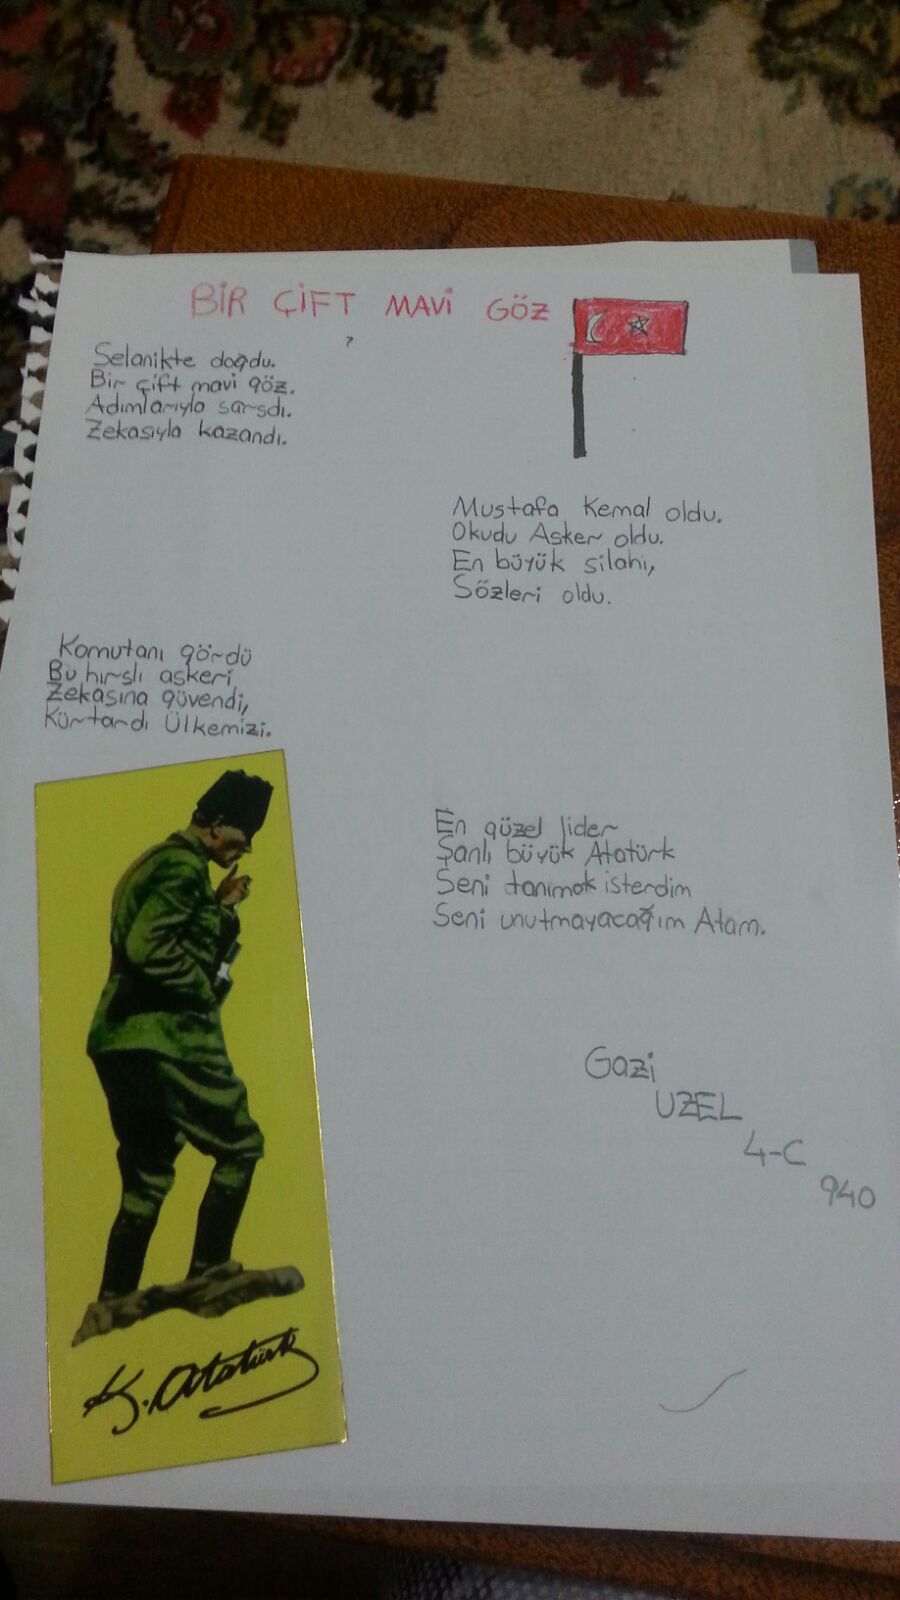 BİR ÇİFT MAVİ GÖZ
Selanikte doğdu.
Bir çift mavi göz.
Adımlarıyla sarsdı.
Zekasıyla kazandı.
Mustafa Kemal oldu.
Okudu Asker oldu.
En büyük silahı,
Sözleri oldu.
Komutanı gördü
Bu hırslı askeri
Zekasına güvendi,
Kürtardı Ülkemizi.
En güzel lider
Şanlı büyük Atatürk
Seni tanımak isterdim
Seni unutmayacağım Atam.
Gazi
UZEL
4-C
940
K. Atatürk